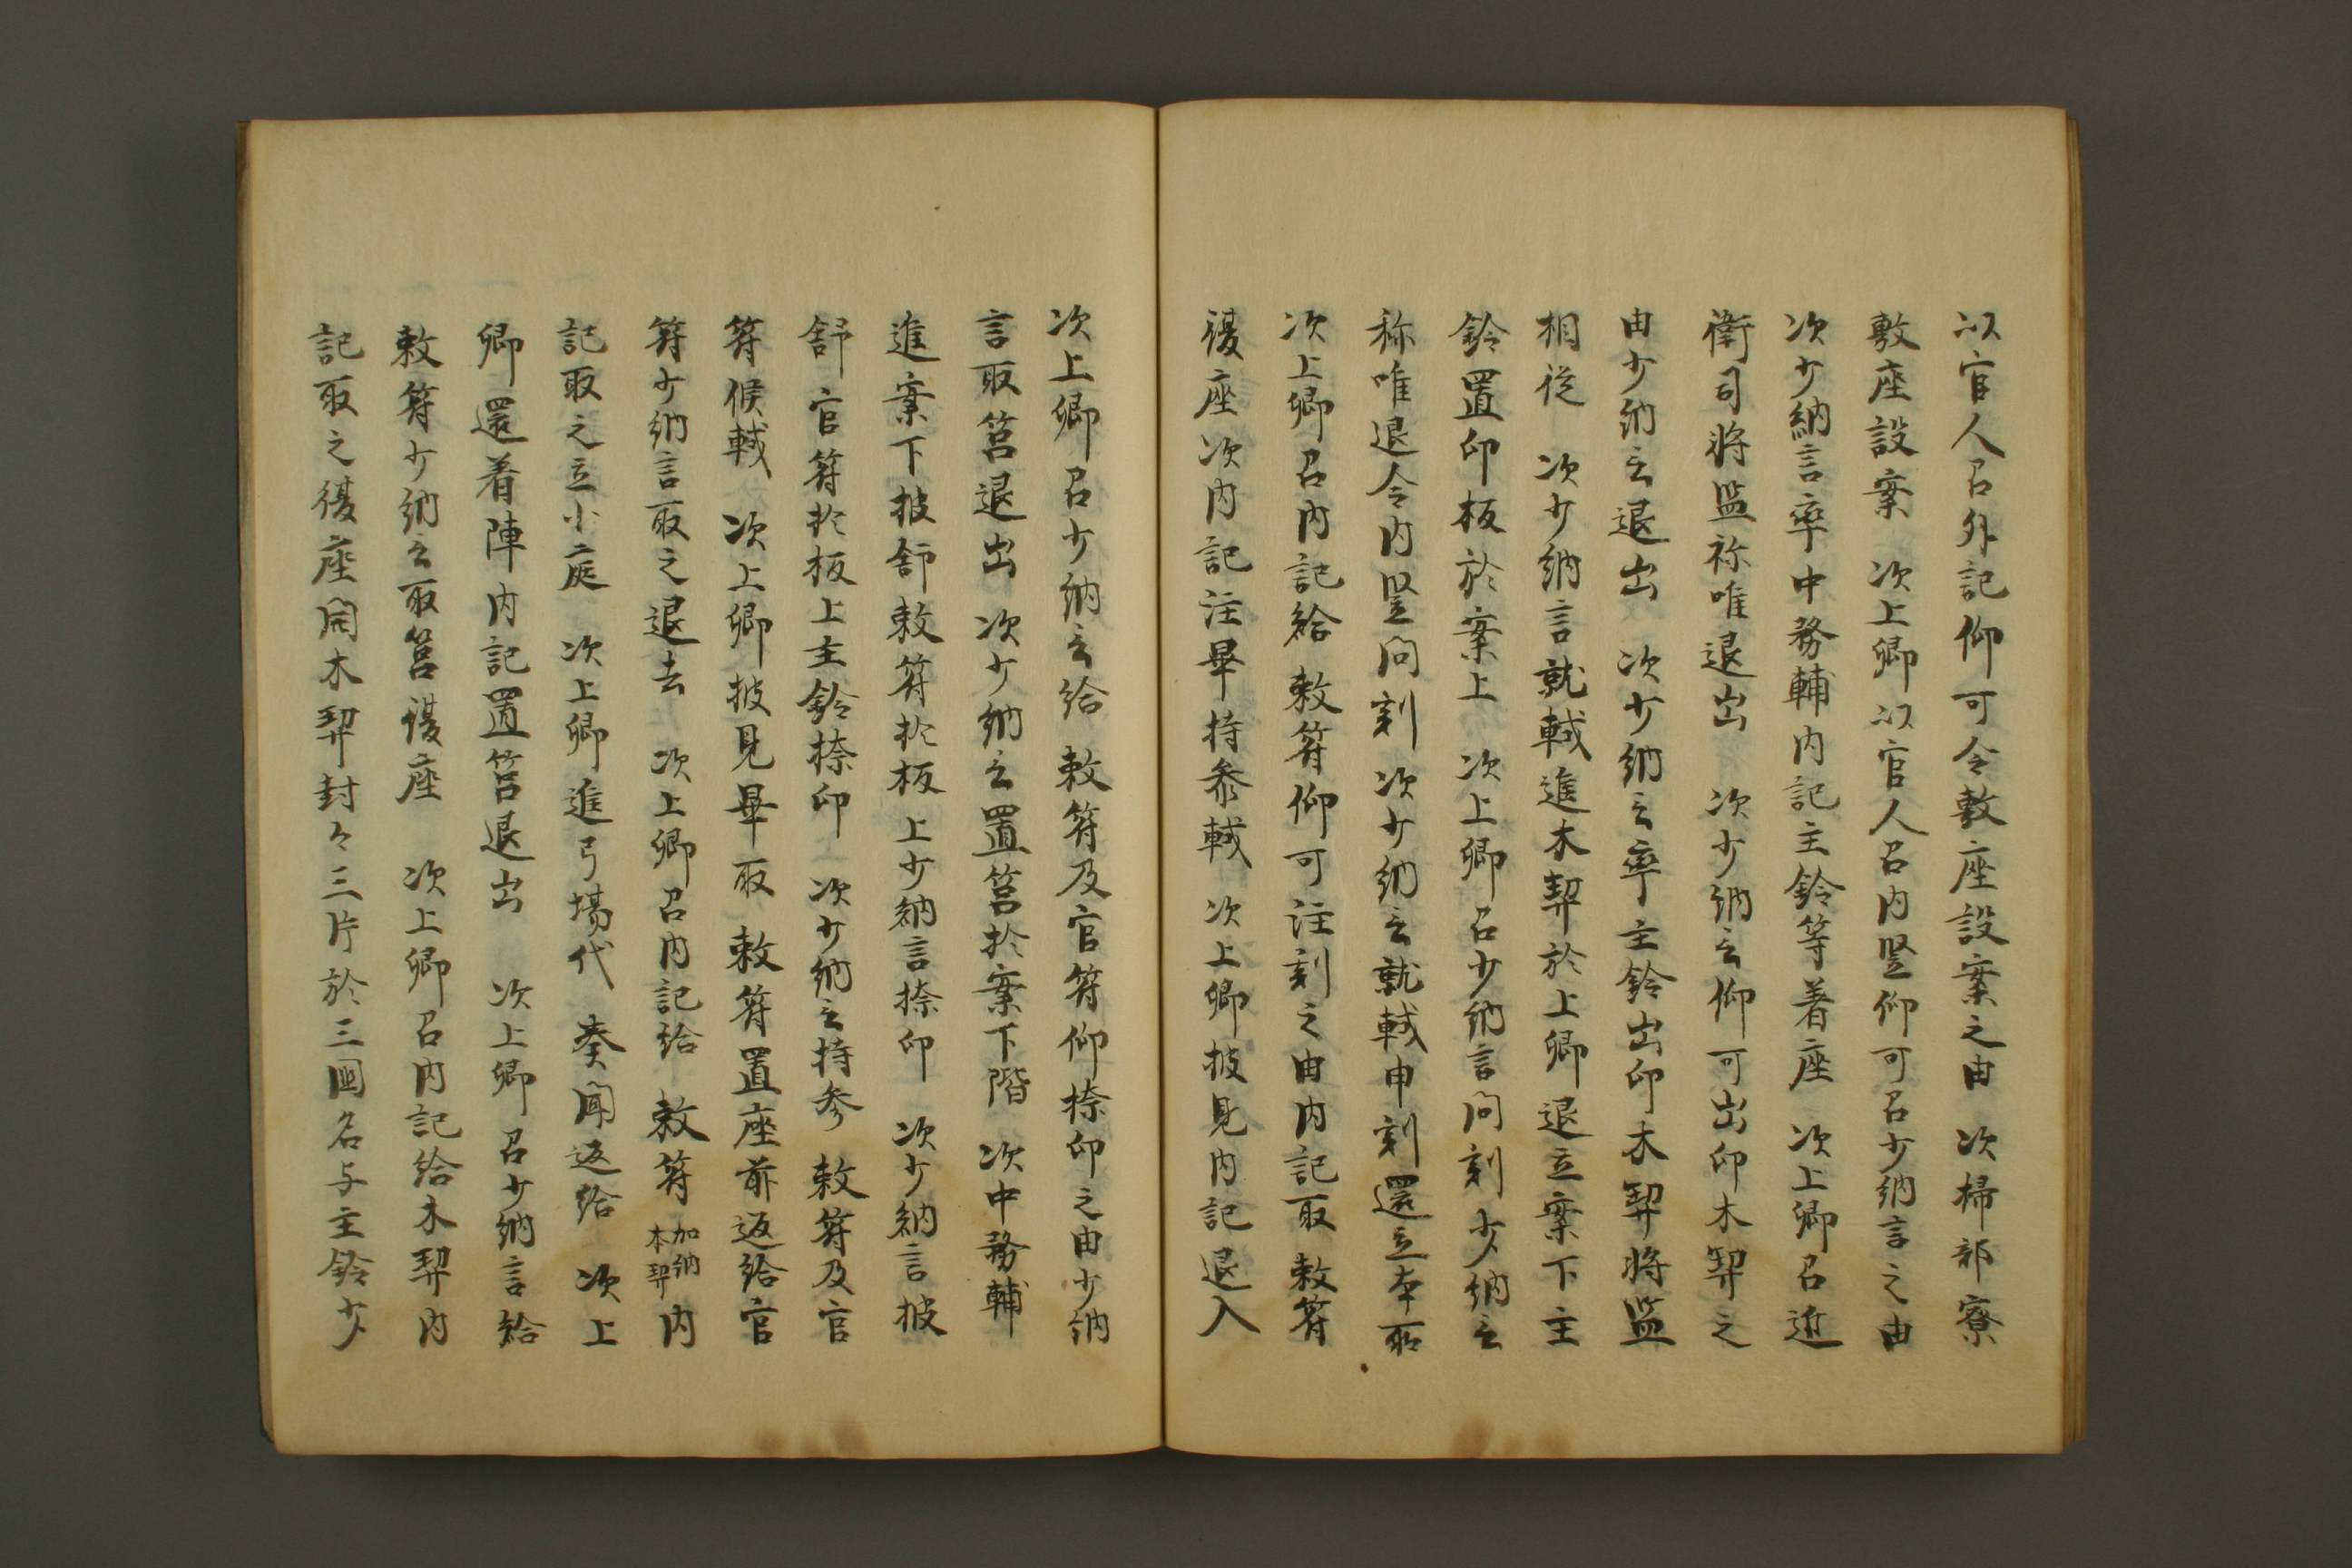 以官人召外記仰可令敷座設案之由　次掃部寮
敷座設案　次上卿以官人召内竪仰可召少納言之由
次少納言率中務輔内記主鈴等着座　次上卿召近
衛司将監称唯退出　次少納言仰可出印木契之
由少納言退出　次少納言率主鈴出印木契将監
相従　次少納言就軾進木契於上卿退立案下主
鈴置印板於案上　次上卿召少納言問刻少納言
称唯退令内竪問刻　次少納言就軾申刻還立本所
次上卿召内記給　敕符仰可注刻之由内記取　敕符
復座　次内記注畢持参軾　次上卿披見内記退入
次上卿召少納言給　敕符及官符仰捺印之由少納
言取筥退出　次少納言置筥於案下階　次中務輔
進案下披舒敕符於板上少納言捺印　次少納言披
舒官符於板上主鈴捺印　次少納言持参　敕符及官
符候軾　次上卿披見畢取　敕符置座前返給官
符少納言取之退去　次上卿召内記給　敕符加納本契内
記取之立小庭　次上卿進弓場代　奏聞返給　次上
卿還着陣内記置筥退出　次上卿召少納言給
敕符少納言取筥復座　次上卿召内記給木契内
記取之復座開木契封々三片於三国名与主鈴少